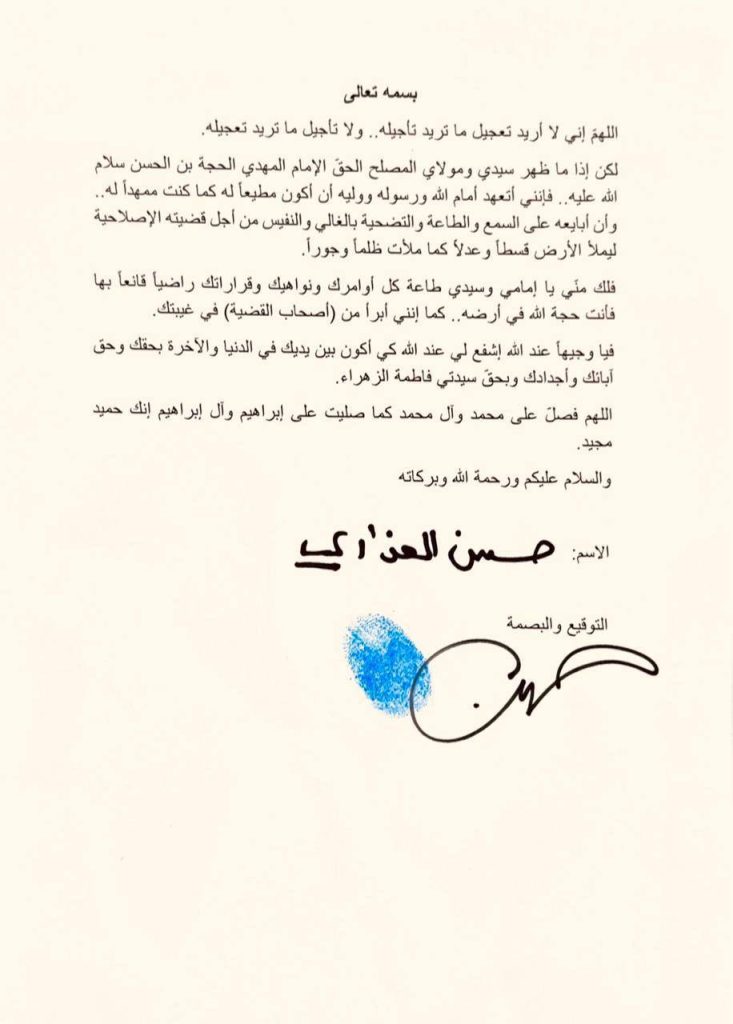 بسمه تعالى
اللهمّ إني لا أريد تعجيل ما تريد تأجيله.. ولا تأجيل ما تريد تعجيله.
لكن إذا ما ظهر سيدي ومولاي المصلح الحقّ الإمام المهدي الحجة بن الحسن سلام
الله عليه.. فإنني أتعهد أمام الله ورسوله ووليه أن أكون مطيعاً له كما كنت ممهداً له..
وأن أبايعه على السمع والطاعة والتضحية بالغالي والنفيس من أجل قضيته الإصلاحية
ليملأ الأرض قسطاً وعدلاً كما ملأت ظلماً وجوراً.
فلك منّي يا إمامي وسيدي طاعة كل أوامرك ونواهيك وقراراتك راضياً قانعاً بها
فأنت حجة الله في أرضه.. كما إنني أبرأ من (أصحاب القضية) في غيبتك.
فيا وجيهاً عند الله إشفع لي عند الله كي أكون بين يديك في الدنيا والآخرة بحقك وحق
آبائك وأجدادك وبحقّ سيدتي فاطمة الزهراء.
اللهم فصلّ على محمد وآل محمد كما صليت على إبراهيم وآل إبراهيم إنك حميد
مجيد.
والسلام عليكم ورحمة الله وبركاته
الاسم: حسن العذاري
التوقيع والبصمة